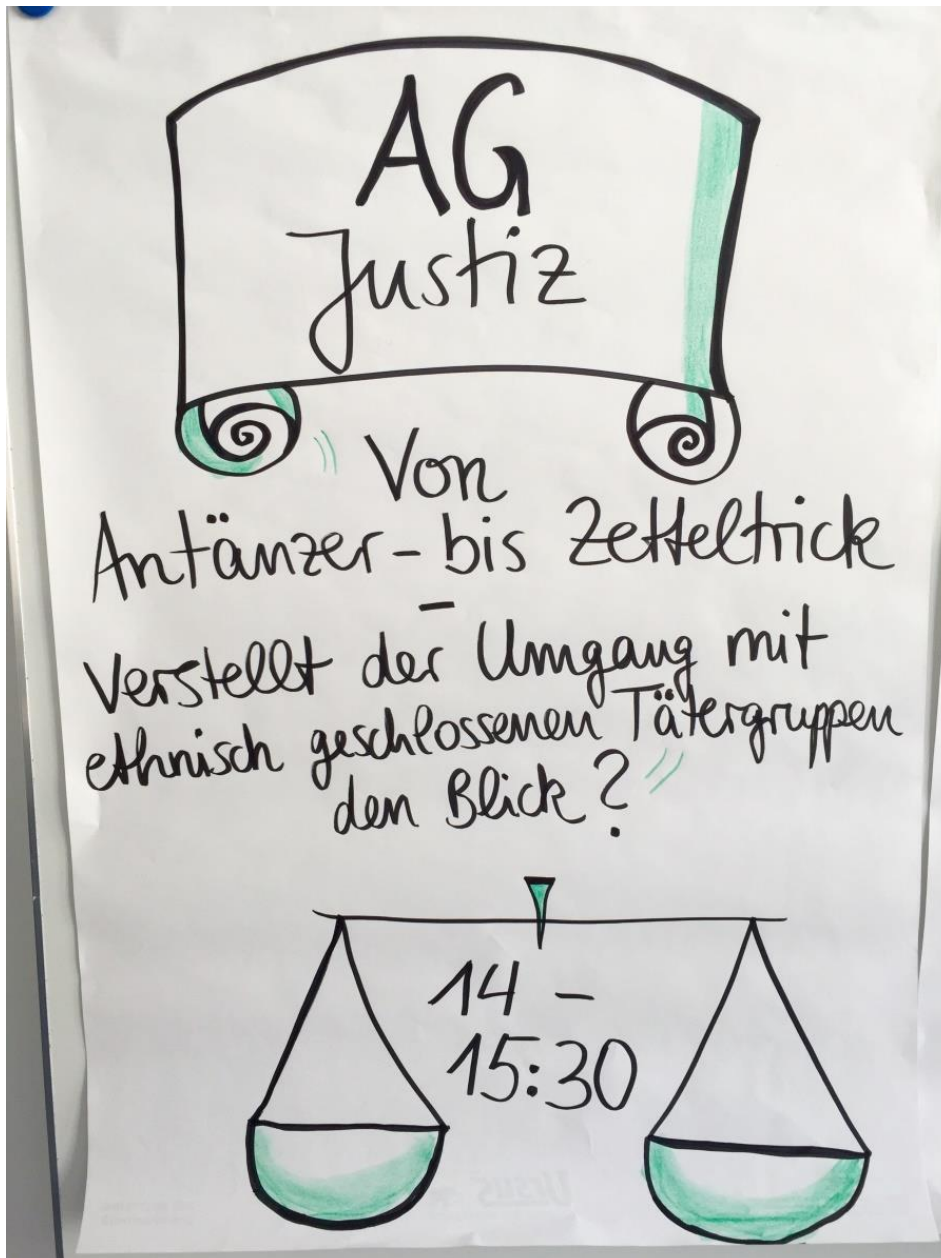 AG
Justiz
"Von
Antänzer- bis Zetteltrick
-
Verstellt der Umgang mit
ethnisch geschlossenen Tätergruppen
den Blick?"
14 -
15:30